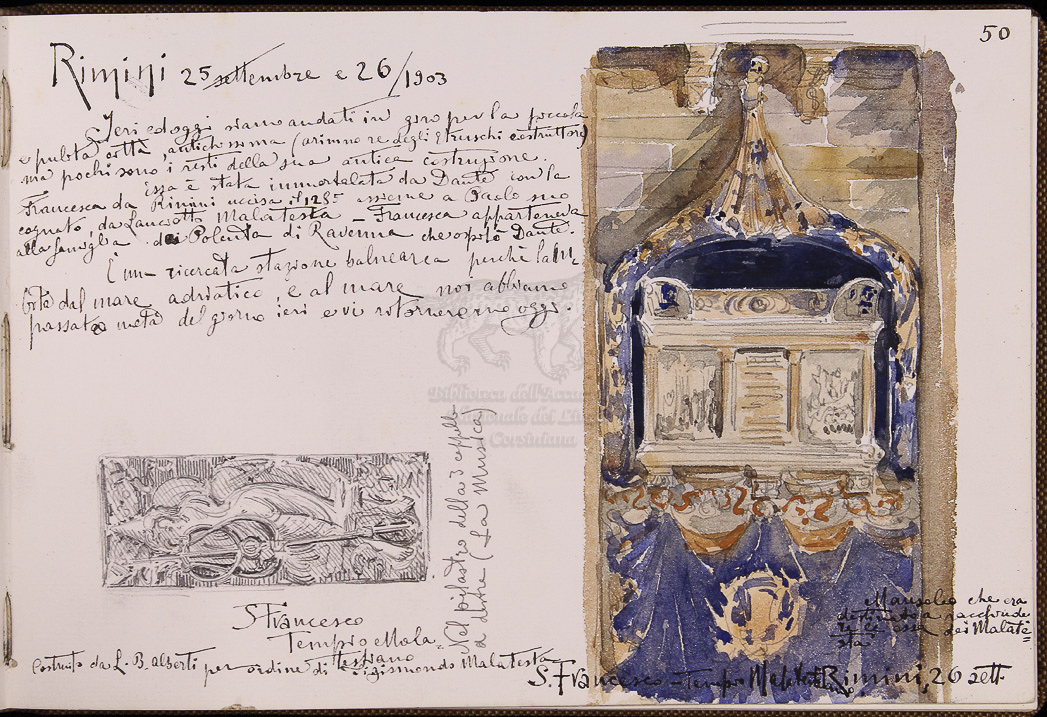 50
Rimini 25 settembre e 26/1903
Ieri ed oggi siamo andati in giro per la piccola
e pulita città, antichissima (arimno re degli Etruschi costruttore)
ma pochi sono i resti della sua antica costruzione.
Essa è stata immortalata da Dante con la
Francesca da Rimini uccisa il 128 assieme a Paolo suo
cognato, da Lanciotto Malatesta – Francesca apparteneva
alla famiglia dei Polenta di Ravenna che ospitò Dante.
È una ricercata stazione balnearea perchè
dal mare adriatico, e al mare noi abbiamo
passato metà del giorno ieri e vi ritorneremo oggi.
Biblioteca dell'Accademia
Nazionale dei Lincei
Corsiniana
Nel pilastro della 3 cappella
a destra (La Musica)
S Francesco
Tempio Mala=
testiano
Costruito da L. B. Alberti per ordine di Sigismondo Malatesta
Mausoleo che era
destinato a racchiude
re le ossa dei Malate=
sta
S. Francesco – Tempio Rimini, 26 sett.